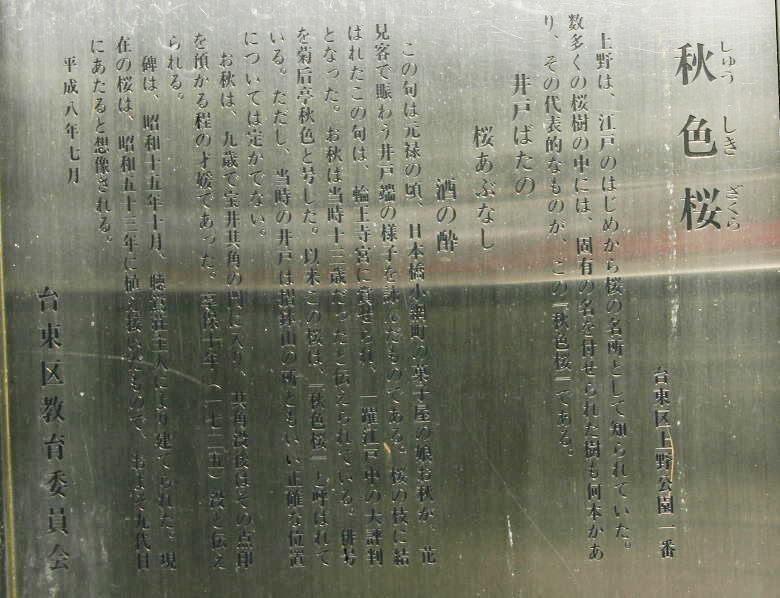 秋色桜
しゅう しき ざくら
台東区上野公園一番
上野は、江戸のはじめから桜の名所として知られていた。
数多くの桜樹の中には、固有の名を付せられた樹も何本かあ
り、その代表的なものが、この「秋色桜」である。
井戸ばたの
桜あぶなし
酒の酔
この句は元禄の頃、日本橋小網町の菓子屋の娘お秋が、花
見客で賑わう井戸端の様子を詠んだものである。桜の枝に結
ばれたこの句は、輪王寺宮に賞せられ、一躍江戸中の大評判
となった。お秋は当時十三歳だったと伝えられている。俳号
を菊后亭秋色と号した。以来この桜は、「秋色桜」と呼ばれて
いる。ただし、当時の井戸は摺鉢山の所ともいい正確な位置
については定かでない。
お秋は、九歳で宝井其角の門に入り、其角没後はその点印
を預かる程の才媛であった。享保十年（一七二五）没と伝え
られる。
碑は、昭和十五年十月、聴鴬荘主人により建てられた。現
在の桜は、昭和五十三年に植え接いだもので、およそ九代目
にあたると想像される。
平成八年七月
台東区教育委員会